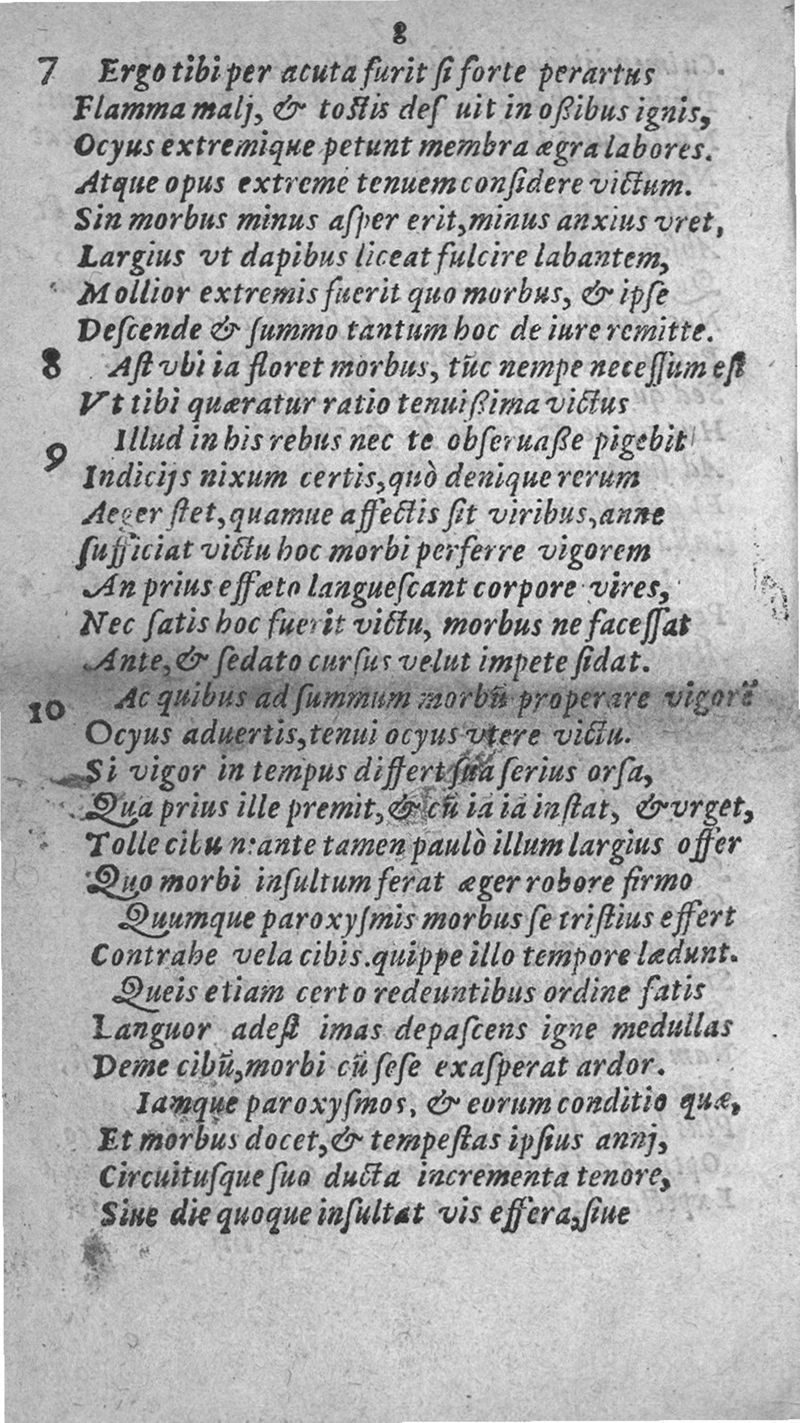 8
7 Ergo tibi per acuta furit ſi forte perartus
Flamma malj, & toſtis deſ uit in oßibus ignis,
Ocyus extremique petunt membra ægra labores.
Atque opus extremè tenuem conſidere victum.
Sin morbus minus aſper erit, minus anxius vret,
Largius vt dapibus liceat fulcire labantem,
Mollior extremis fuerit quo morbus, & ipſe
Deſcende & ſummo tantum hoc de iure remitte.
8 Aſt vbi iā floret morbus, tūc nempe neceſſum eſt
Vt tibi quæratur ratio tenuißima victus
9 Illud in his rebus nec te obſeruaße pigebit
Indicijs nixum certis, quò denique rerum
Aeger ſtet, quamue affectis ſit viribus, anne
ſufficiat victu hoc morbi perferre vigorem
An prius effæto langueſcant corpore vires,
Nec ſatis hoc fuerit victu, morbus ne faceſſat
Ante, & ſedato curſus velut impete ſidat.
10 Ac quibus ad ſummum morbū properare vigorē
Ocyus aduertis, tenui ocyus vtere victu.
Si vigor in tempus differt ſua ſerius orſa,
Qua prius ille premit, & cū iā iā inſtat, & vrget,
Tolle cibu n: ante tamen paulò illum largius offer
Quo morbi inſultum ferat æger robore firmo
Quumque paroxyſmis morbus ſe triſtius effert
Contrahe vela cibis. quippe illo tempore lædunt.
Queis etiam certo redeuntibus ordine fatis
Languor adeſt imas depaſcens igne medullas
Deme cibū, morbi cū ſeſe exaſperat ardor.
Iamque paroxyſmos, & eorum conditio quæ,
Et morbus docet, & tempeſtas ipſius annj,
Circuituſque ſuo ducta incrementa tenore,
Siue die quoque inſultat vis effera, ſiue